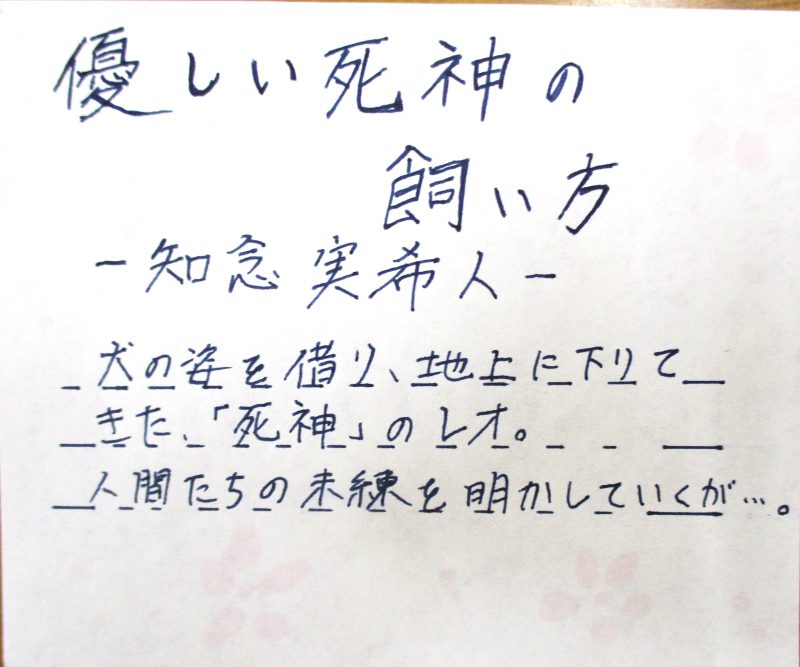 優しい死神の
飼い方
ー知念実希人ー
犬の姿を借り、地上に下りて
きた、「死神」のレオ。
人間たちの未練を明かしていくが…。